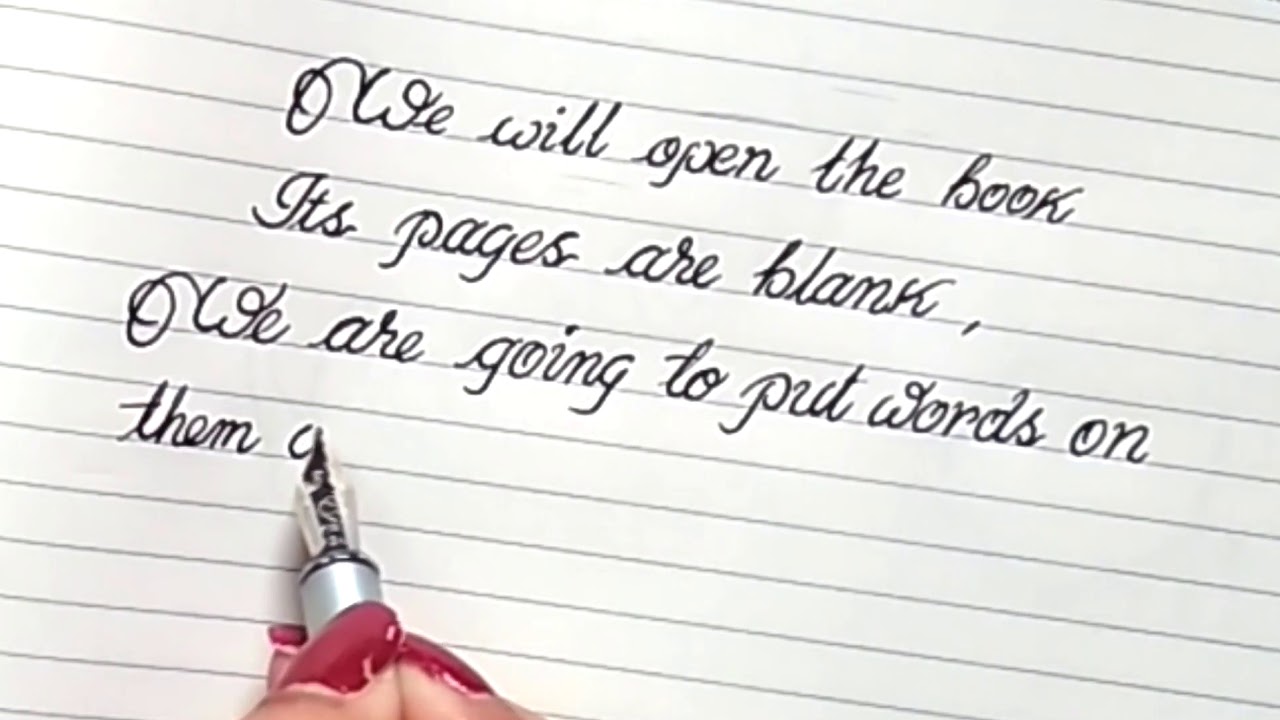 We will open the book
Its pages are blank,
We are going to put words on
them